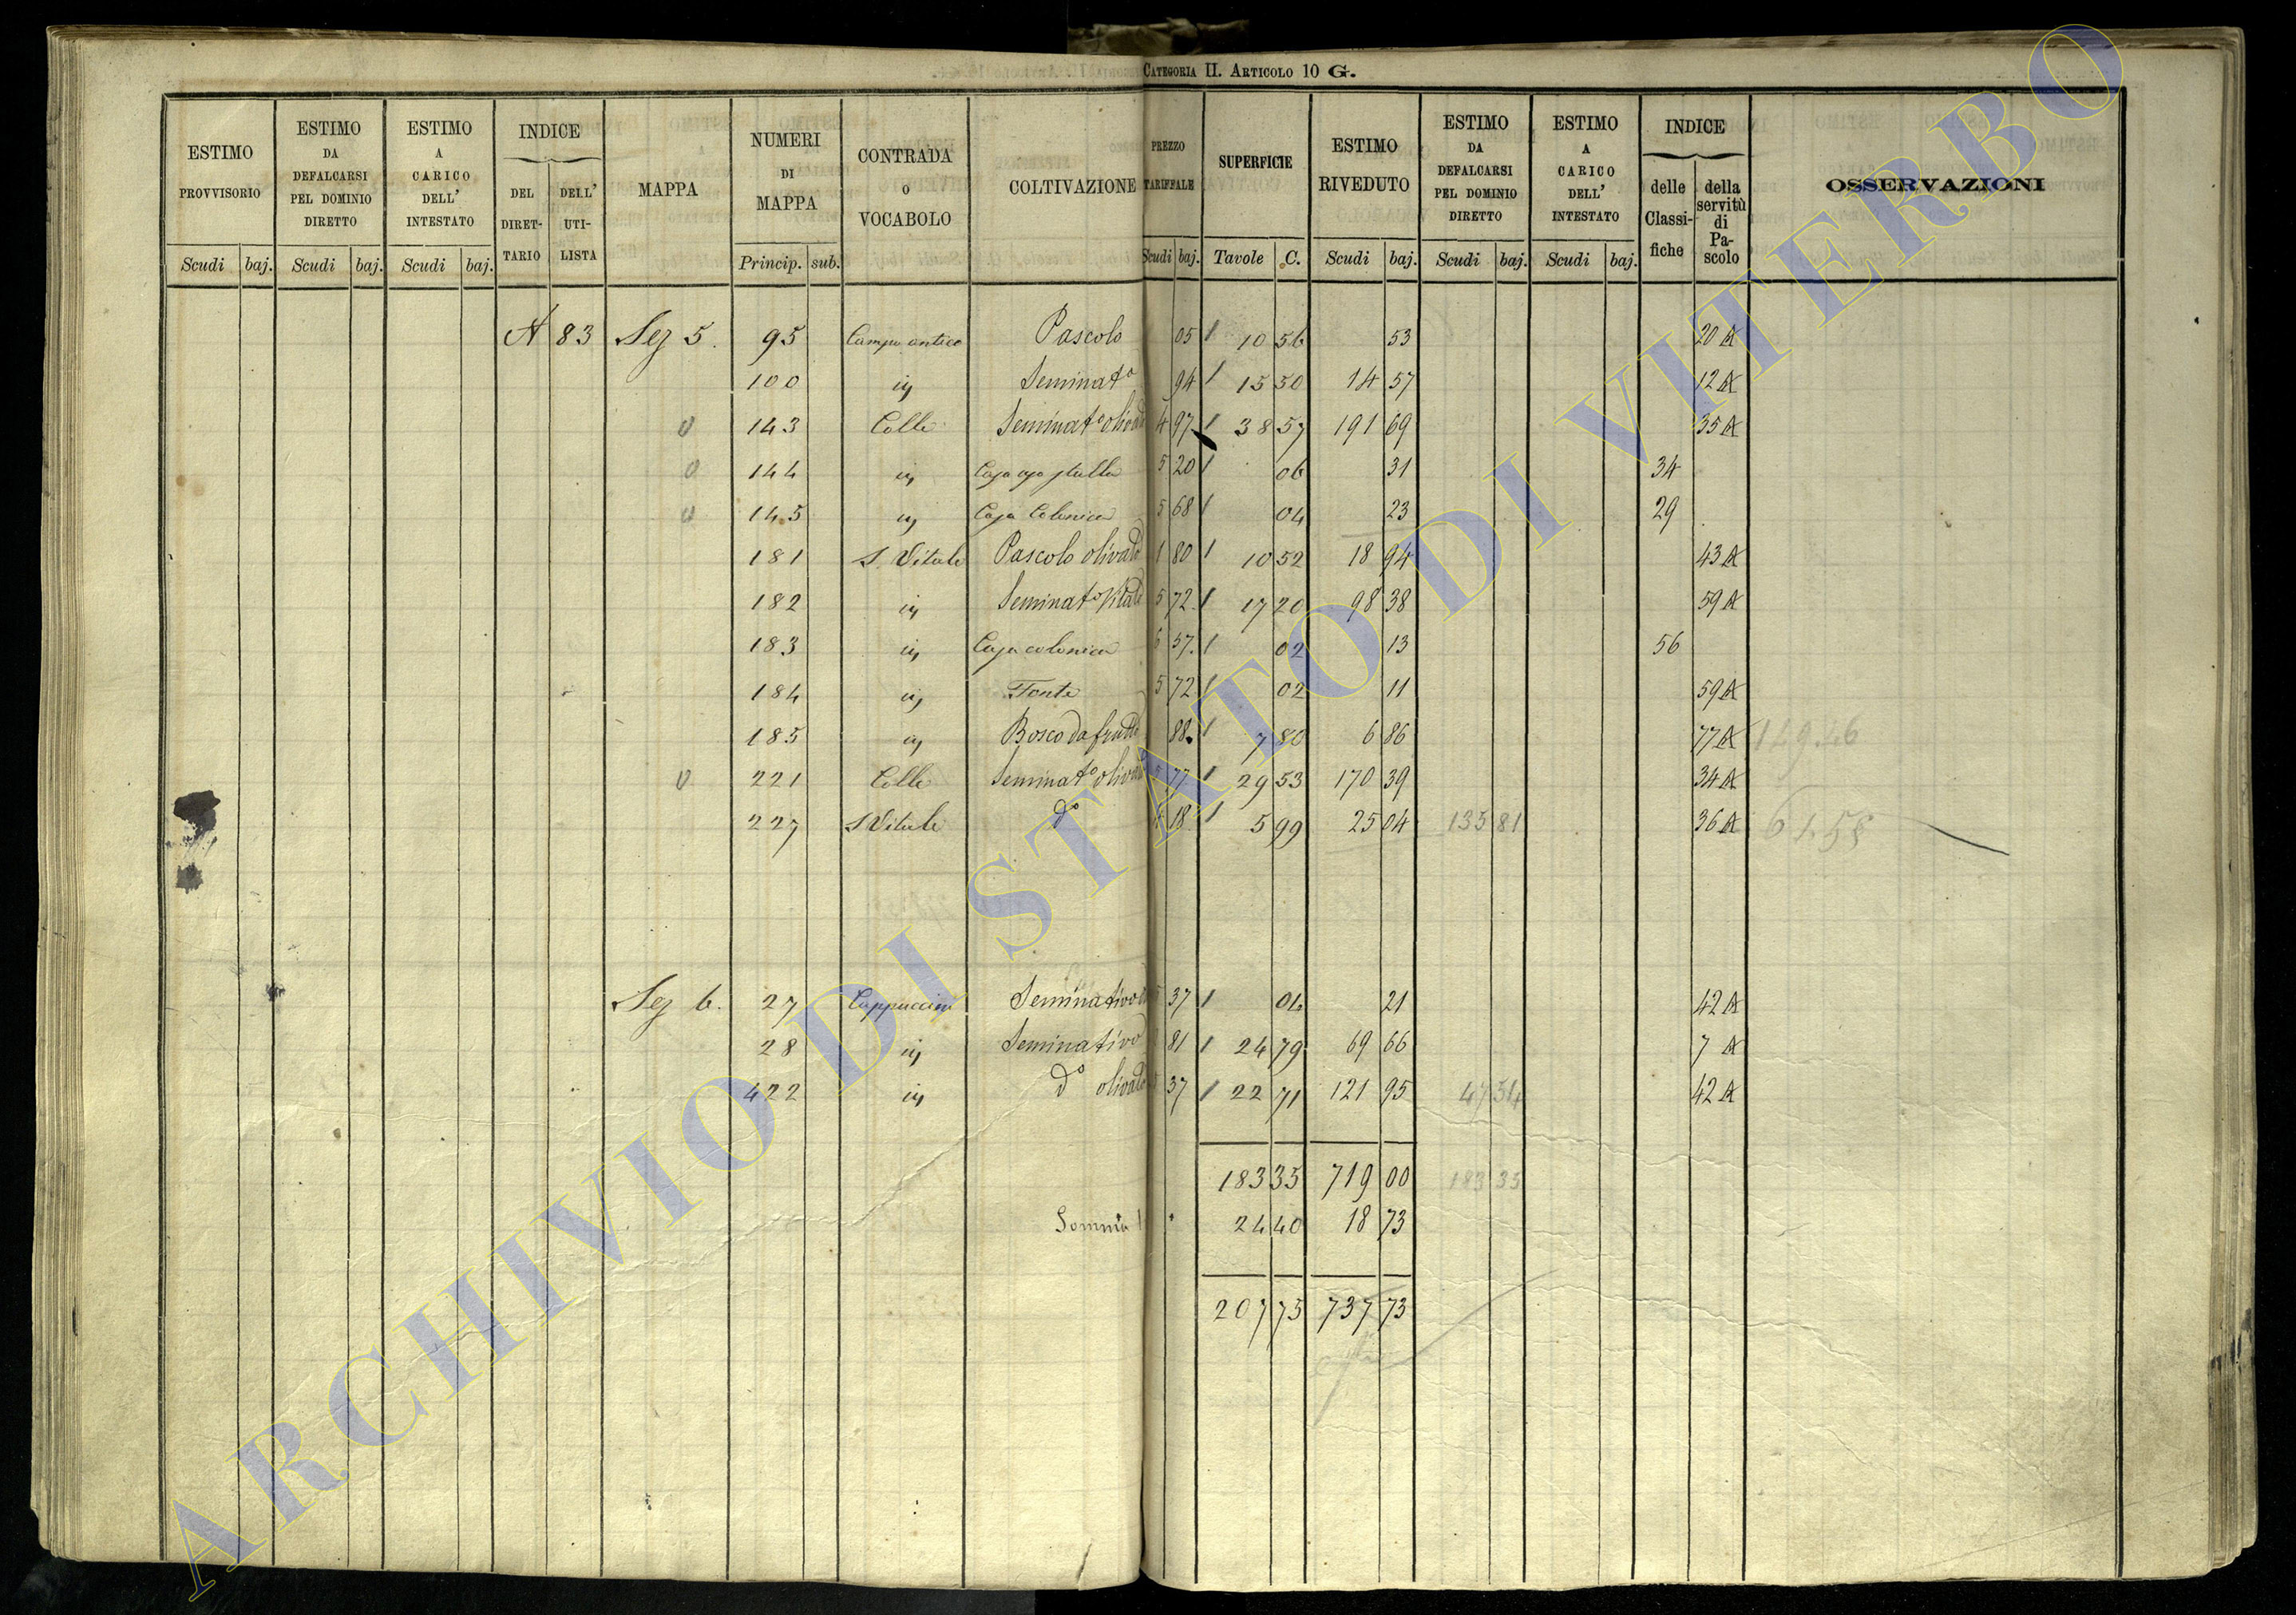 CATEGORIA II. ARTICOLO 10 G.
ESTIMO PROVVISORIO Scudi baj.
ESTIMO DA DEFALCARSI PEL DOMINIO DIRETTO Scudi baj.
ESTIMO A CARICO DELL' INTESTATO Scudi baj.
INDICE DEL DIRETTARIO DELL' UTILISTA
MAPPA
NUMERI DI MAPPA Princip. sub.
CONTRADA O VOCABOLO
COLTIVAZIONE
PREZZO TARIFFALE Scudi baj.
SUPERFICIE Tavole C.
ESTIMO RIVEDUTO Scudi baj.
ESTIMO DA DEFALCARSI PEL DOMINIO DIRETTO Scudi baj.
ESTIMO A CARICO DELL' INTESTATO Scudi baj.
INDICE delle Classifiche della servitù di Pascolo
OSSERVAZIONI
A 83 Sez 5. 95 Campo antico Pascolo 05 10 56 53 20 A
100 Seminato 94 15 50 14 57 12 A
143 Colle Seminato olivato 4 97 38 57 191 69 35 A
144 5 20 06 31 34
145 Casa Colonica 5 68 04 23 29
181 S. Vitale Pascolo olivato 1 80 10 52 18 94 43 A
182 5 72 17 20 98 38 59 A
183 Casa colonica 6 57 02 13 56
184 Fonte 5 72 02 11 59 A
185 Bosco da frutto 88 7 80 6 86 77 A 129.46
221 Colle Seminato olivato 77 29 53 170 39 34 A
227 S Vitale d° 4 18 5 99 25 04 135 81 36 A 61.58
Sez 6. 27 Cappuccini 37 04 21 42 A
28 Seminativo 81 24 79 69 66 7 A
422 d° olivato 37 22 71 121 95 47 54 42 A
183 35 719 00 183 35
Somma 24 40 18 73
207 75 737 73
ARCHIVIO DI STATO DI VITERBO